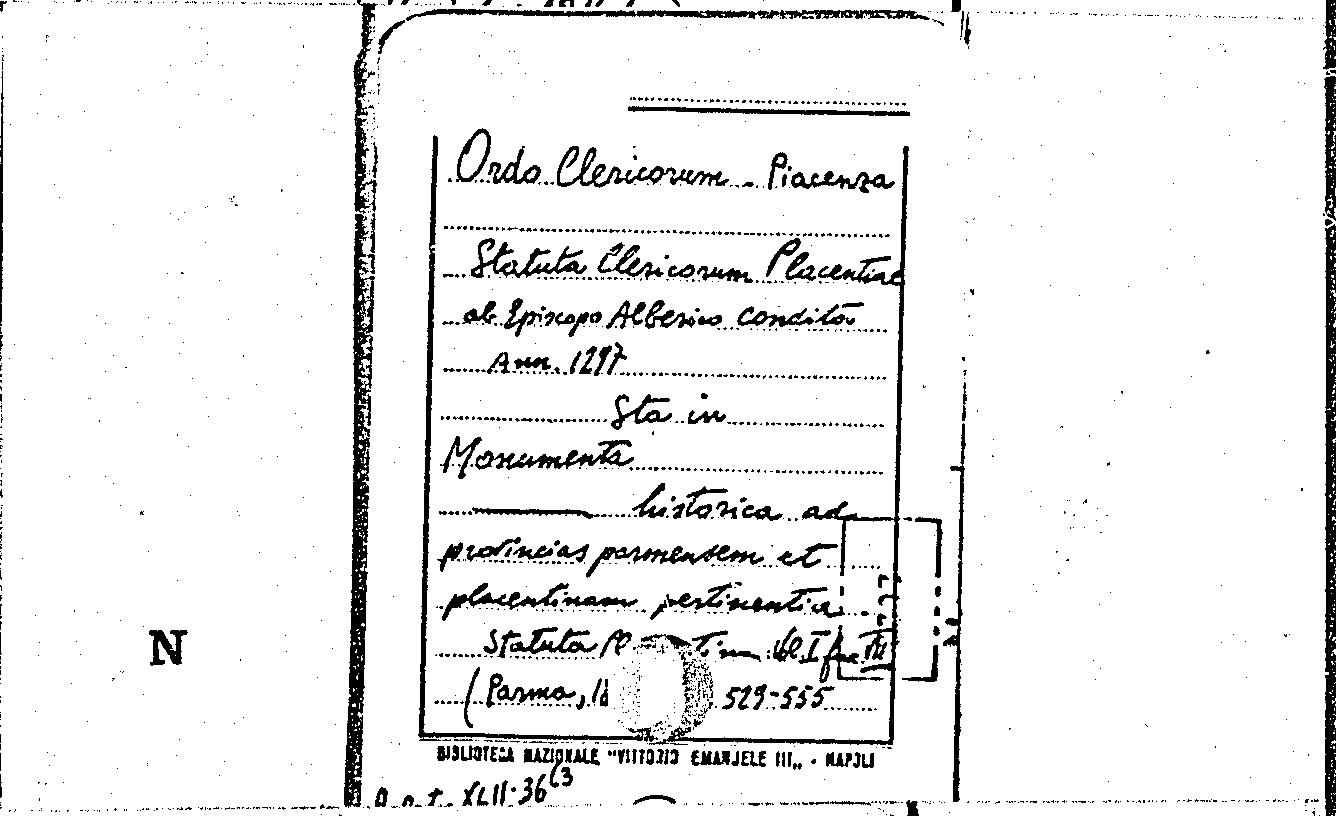 Ordo Clericorum - Piacenza
Statuta Clericorum Placentiae
ab Episcopo Alberico condita
Ann. 1297
Sta in
Monumenta
historica ad
provincias parmensem et
placentinam pertinentia
Statuta Vol I
(Parma, 529-555
N
BIBLIOTECA NAZIONALE "VITTORIO EMANUELE III" - NAPOLI
XLII-36(3